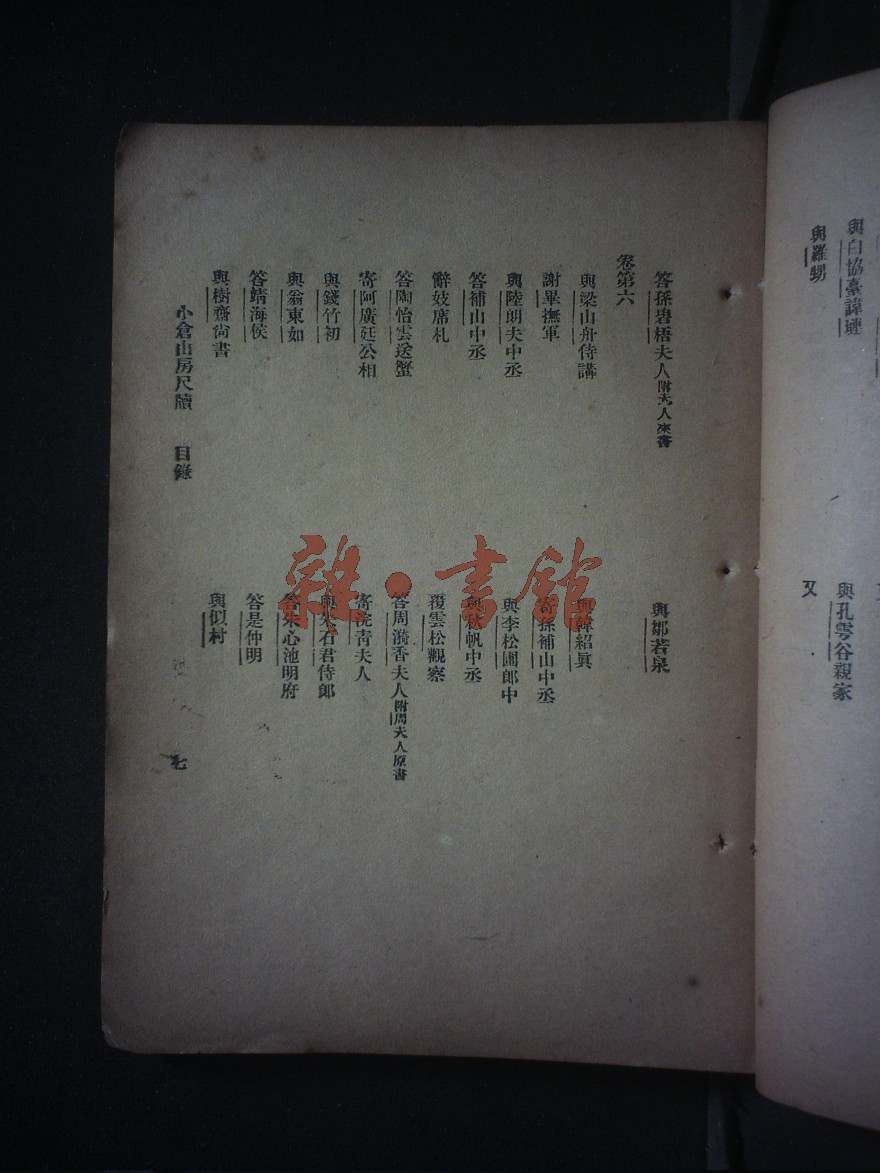 與白協臺諱璉
與羅甥
與孔雩谷親家
又
答孫碧梧夫人附夫人來書
與鄒若泉
卷第六
與梁山舟侍講
與韓紹眞
謝畢撫軍
寄孫補山中丞
與陸朗夫中丞
與李松圃郎中
答補山中丞
與秋帆中丞
辭妓席札
覆雲松觀察
答陶怡雲送蟹
答周漪香夫人附周夫人原書
寄阿廣廷公相
寄浣青夫人
與錢竹初
與朱石君侍郎
與翁東如
答朱心池明府
答鯖海侯
答是仲明
與樹齋尚書
與似村
小倉山房尺牘 目錄
七
雜·書館